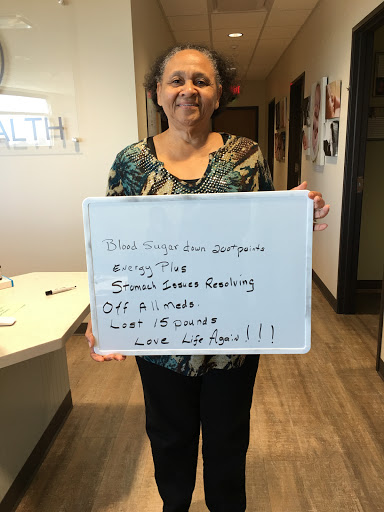 ALTH
EXIT
Blood Sugar down 200+points
Energy Plus
Stomach Issues Resolving
Off All Meds.
Lost 15 pounds
Love Life Again!!!